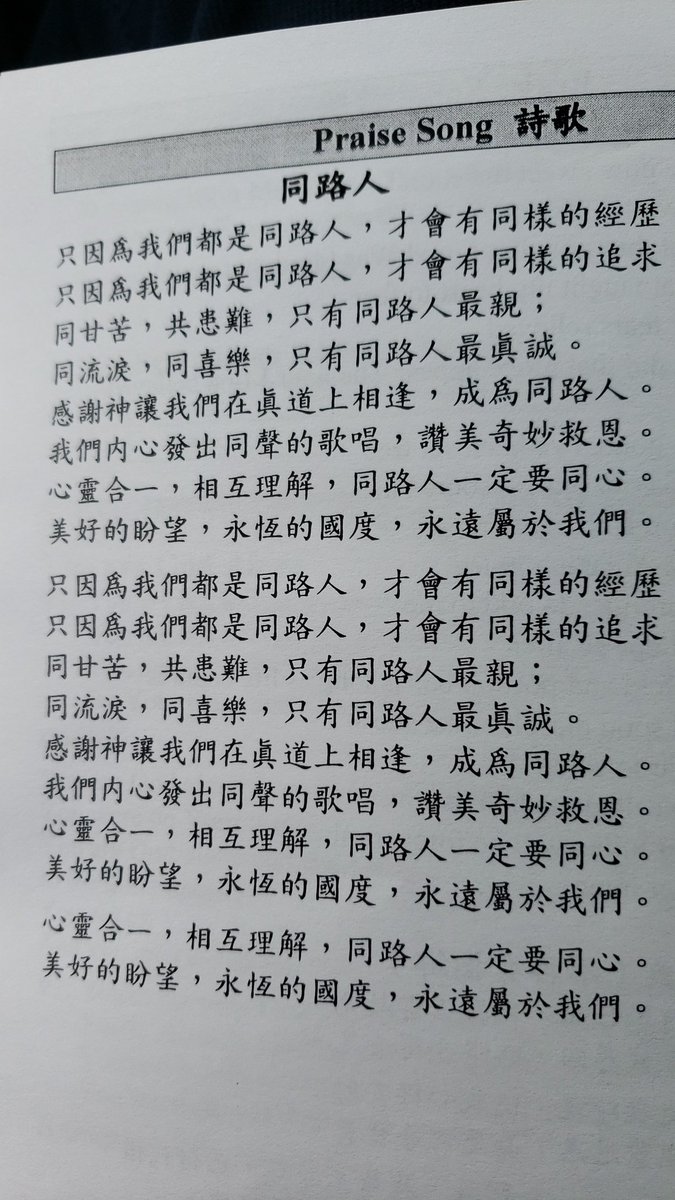 Praise Song 詩歌
同路人
只因爲我們都是同路人，才會有同樣的經歷
只因爲我們都是同路人，才會有同樣的追求
同甘苦，共患難，只有同路人最親；
同流淚，同喜樂，只有同路人最眞誠。
感謝神讓我們在眞道上相逢，成爲同路人。
我們内心發出同聲的歌唱，讚美奇妙救恩。
心靈合一，相互理解，同路人一定要同心。
美好的盼望，永恆的國度，永遠屬於我們。
只因爲我們都是同路人，才會有同樣的經歷
只因爲我們都是同路人，才會有同樣的追求
同甘苦，共患難，只有同路人最親；
同流淚，同喜樂，只有同路人最眞誠。
感謝神讓我們在眞道上相逢，成爲同路人。
我們内心發出同聲的歌唱，讚美奇妙救恩。
心靈合一，相互理解，同路人一定要同心。
美好的盼望，永恆的國度，永遠屬於我們。
心靈合一，相互理解，同路人一定要同心。
美好的盼望，永恆的國度，永遠屬於我們。